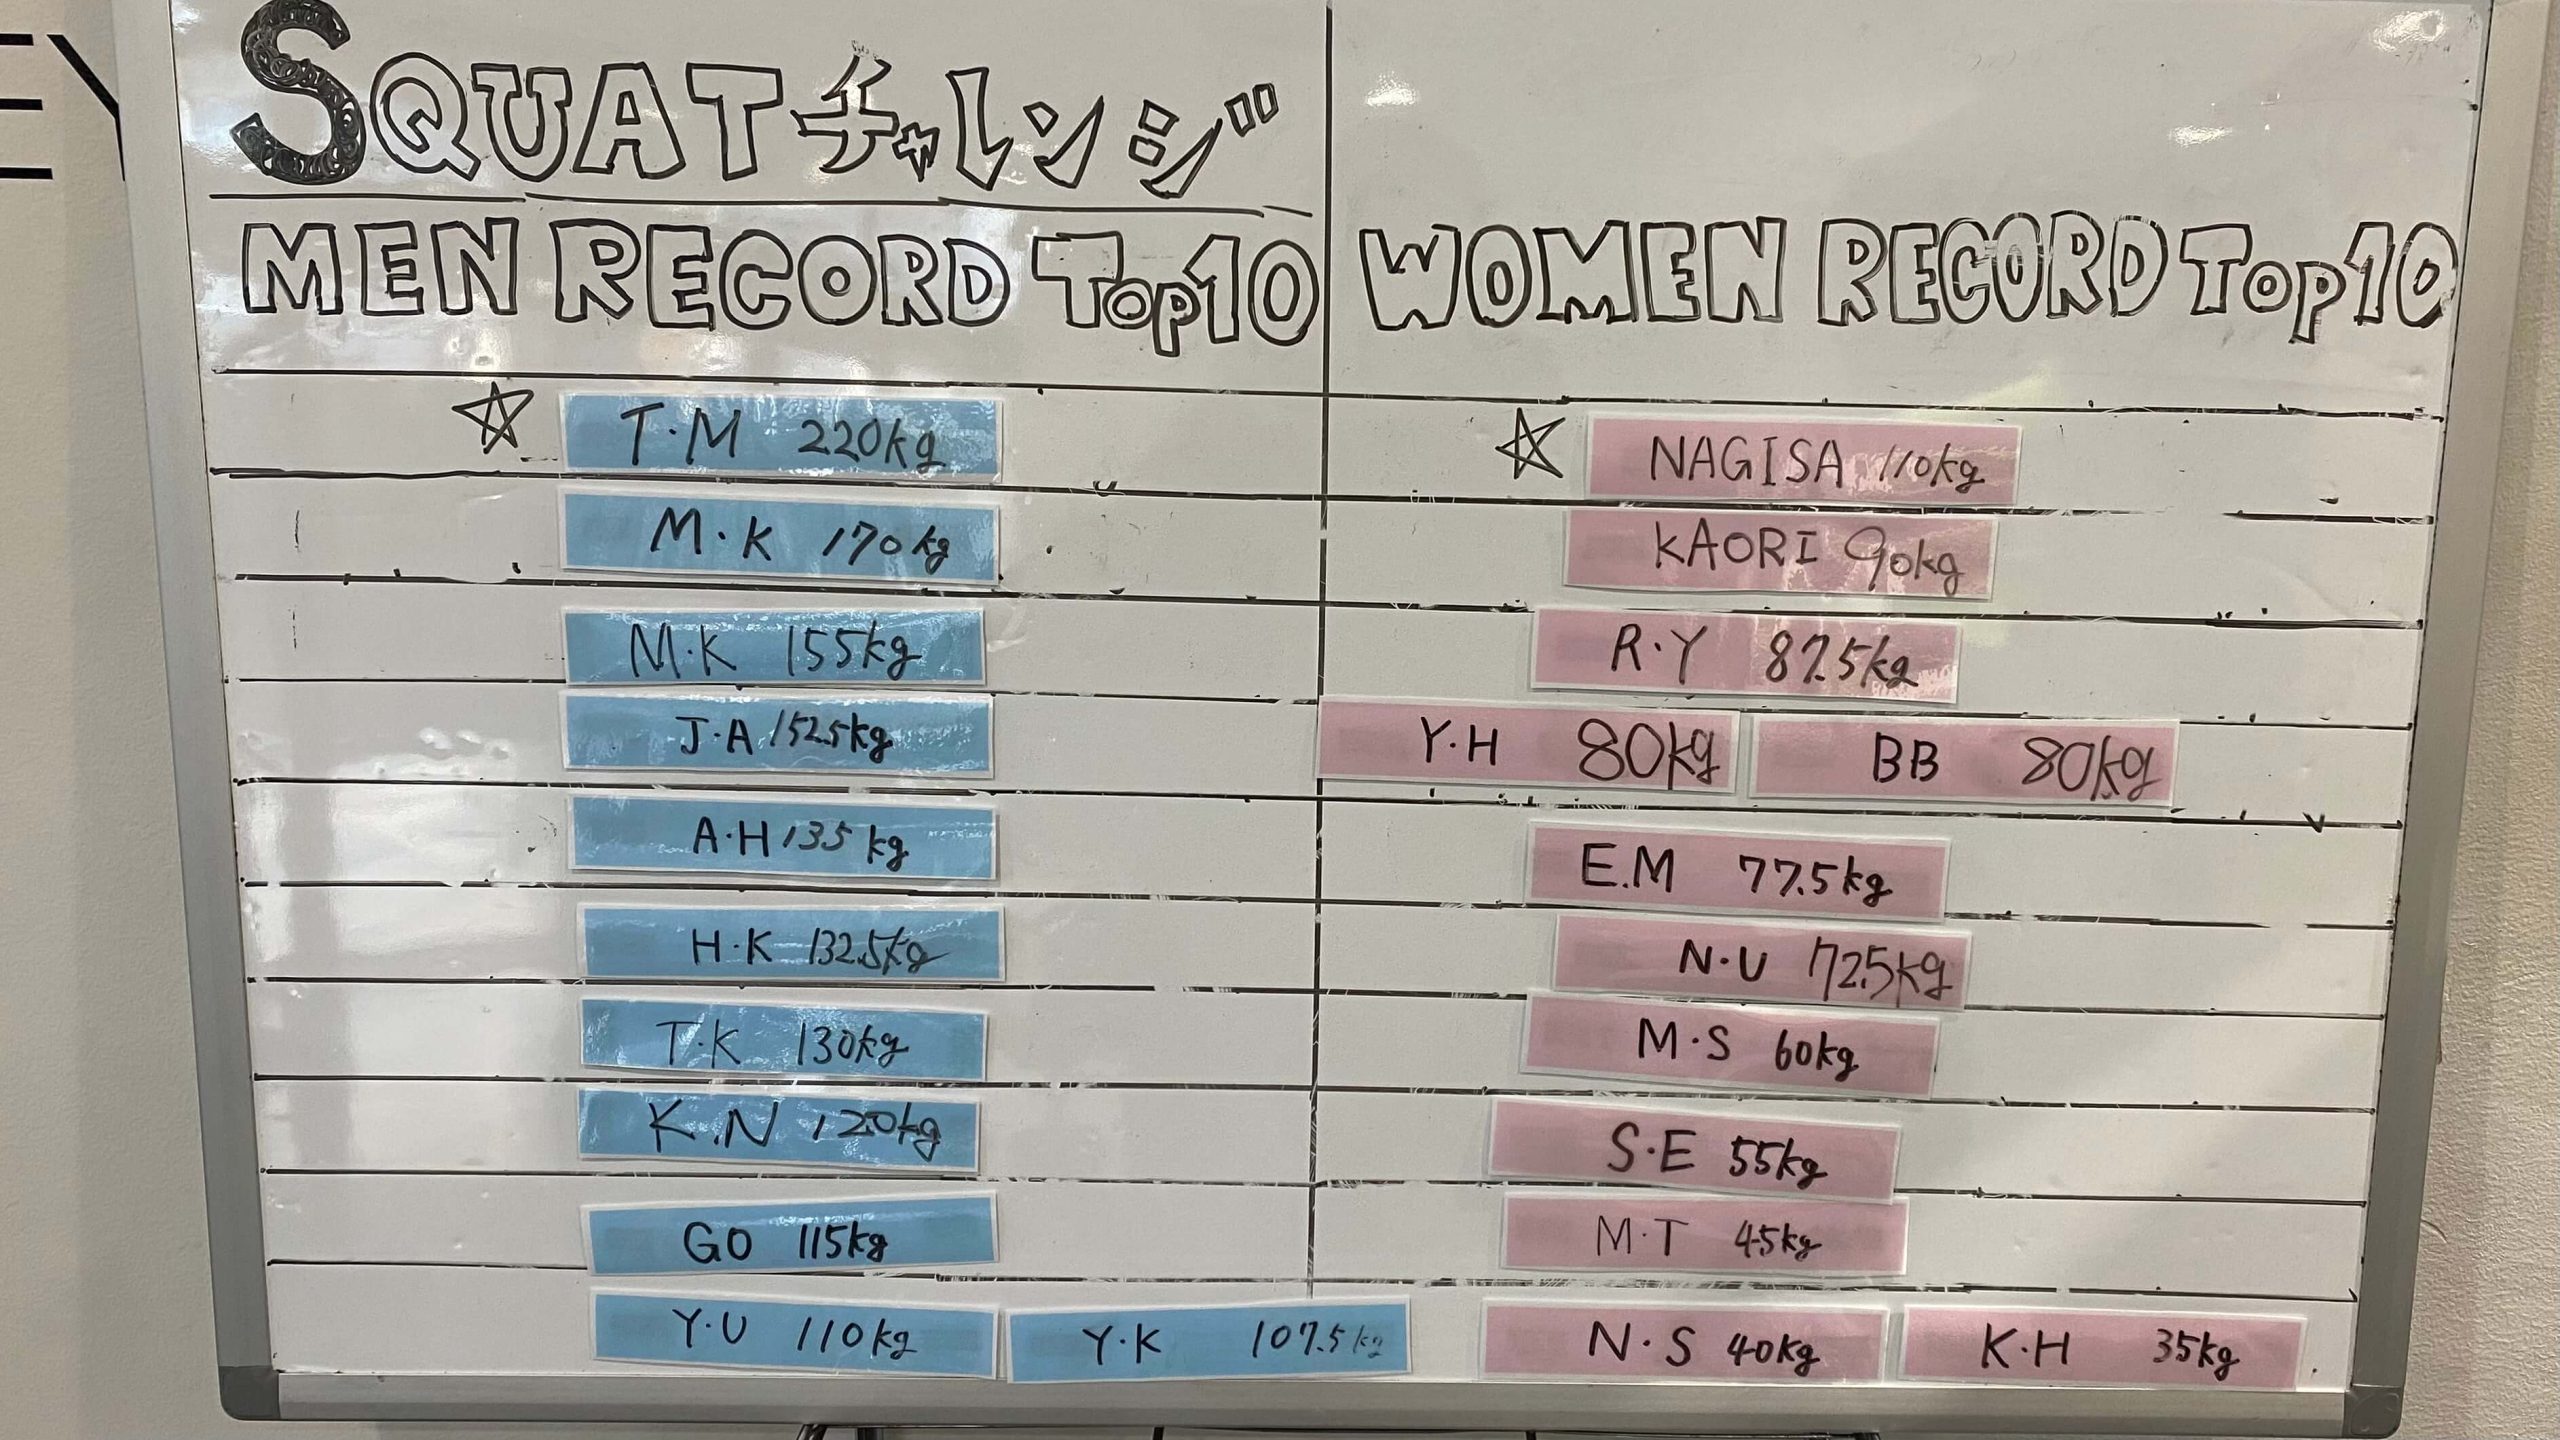 EY
SQUATチャレンジ
MEN RECORD Top10
T・M 220kg
M・K 170kg
M・K 155kg
J・A 152.5kg
A・H 135kg
H・K 132.5kg
T・K 130kg
K.N 120kg
GO 115kg
Y・U 110kg Y・K 107.5kg
WOMEN RECORD Top10
NAGISA 110kg
KAORI 90kg
R・Y 87.5kg
Y・H 80kg BB 80kg
E.M 77.5kg
N・U 72.5kg
M・S 60kg
S・E 55kg
M・T 45kg
N・S 40kg K・H 35kg